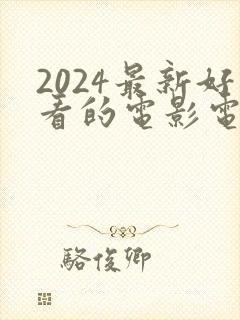 2024最新好
看的電影電
駱俊卿